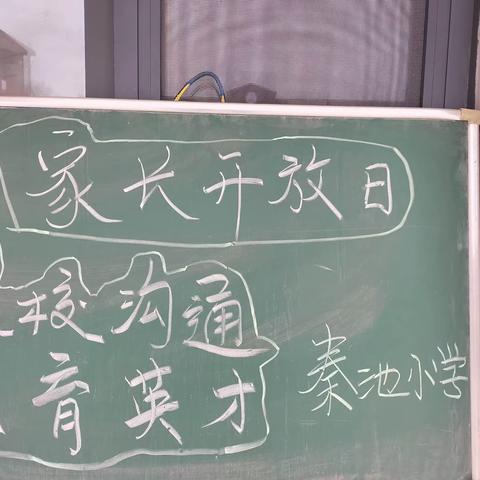 家长开放日
校沟通
育英才
秦池小学